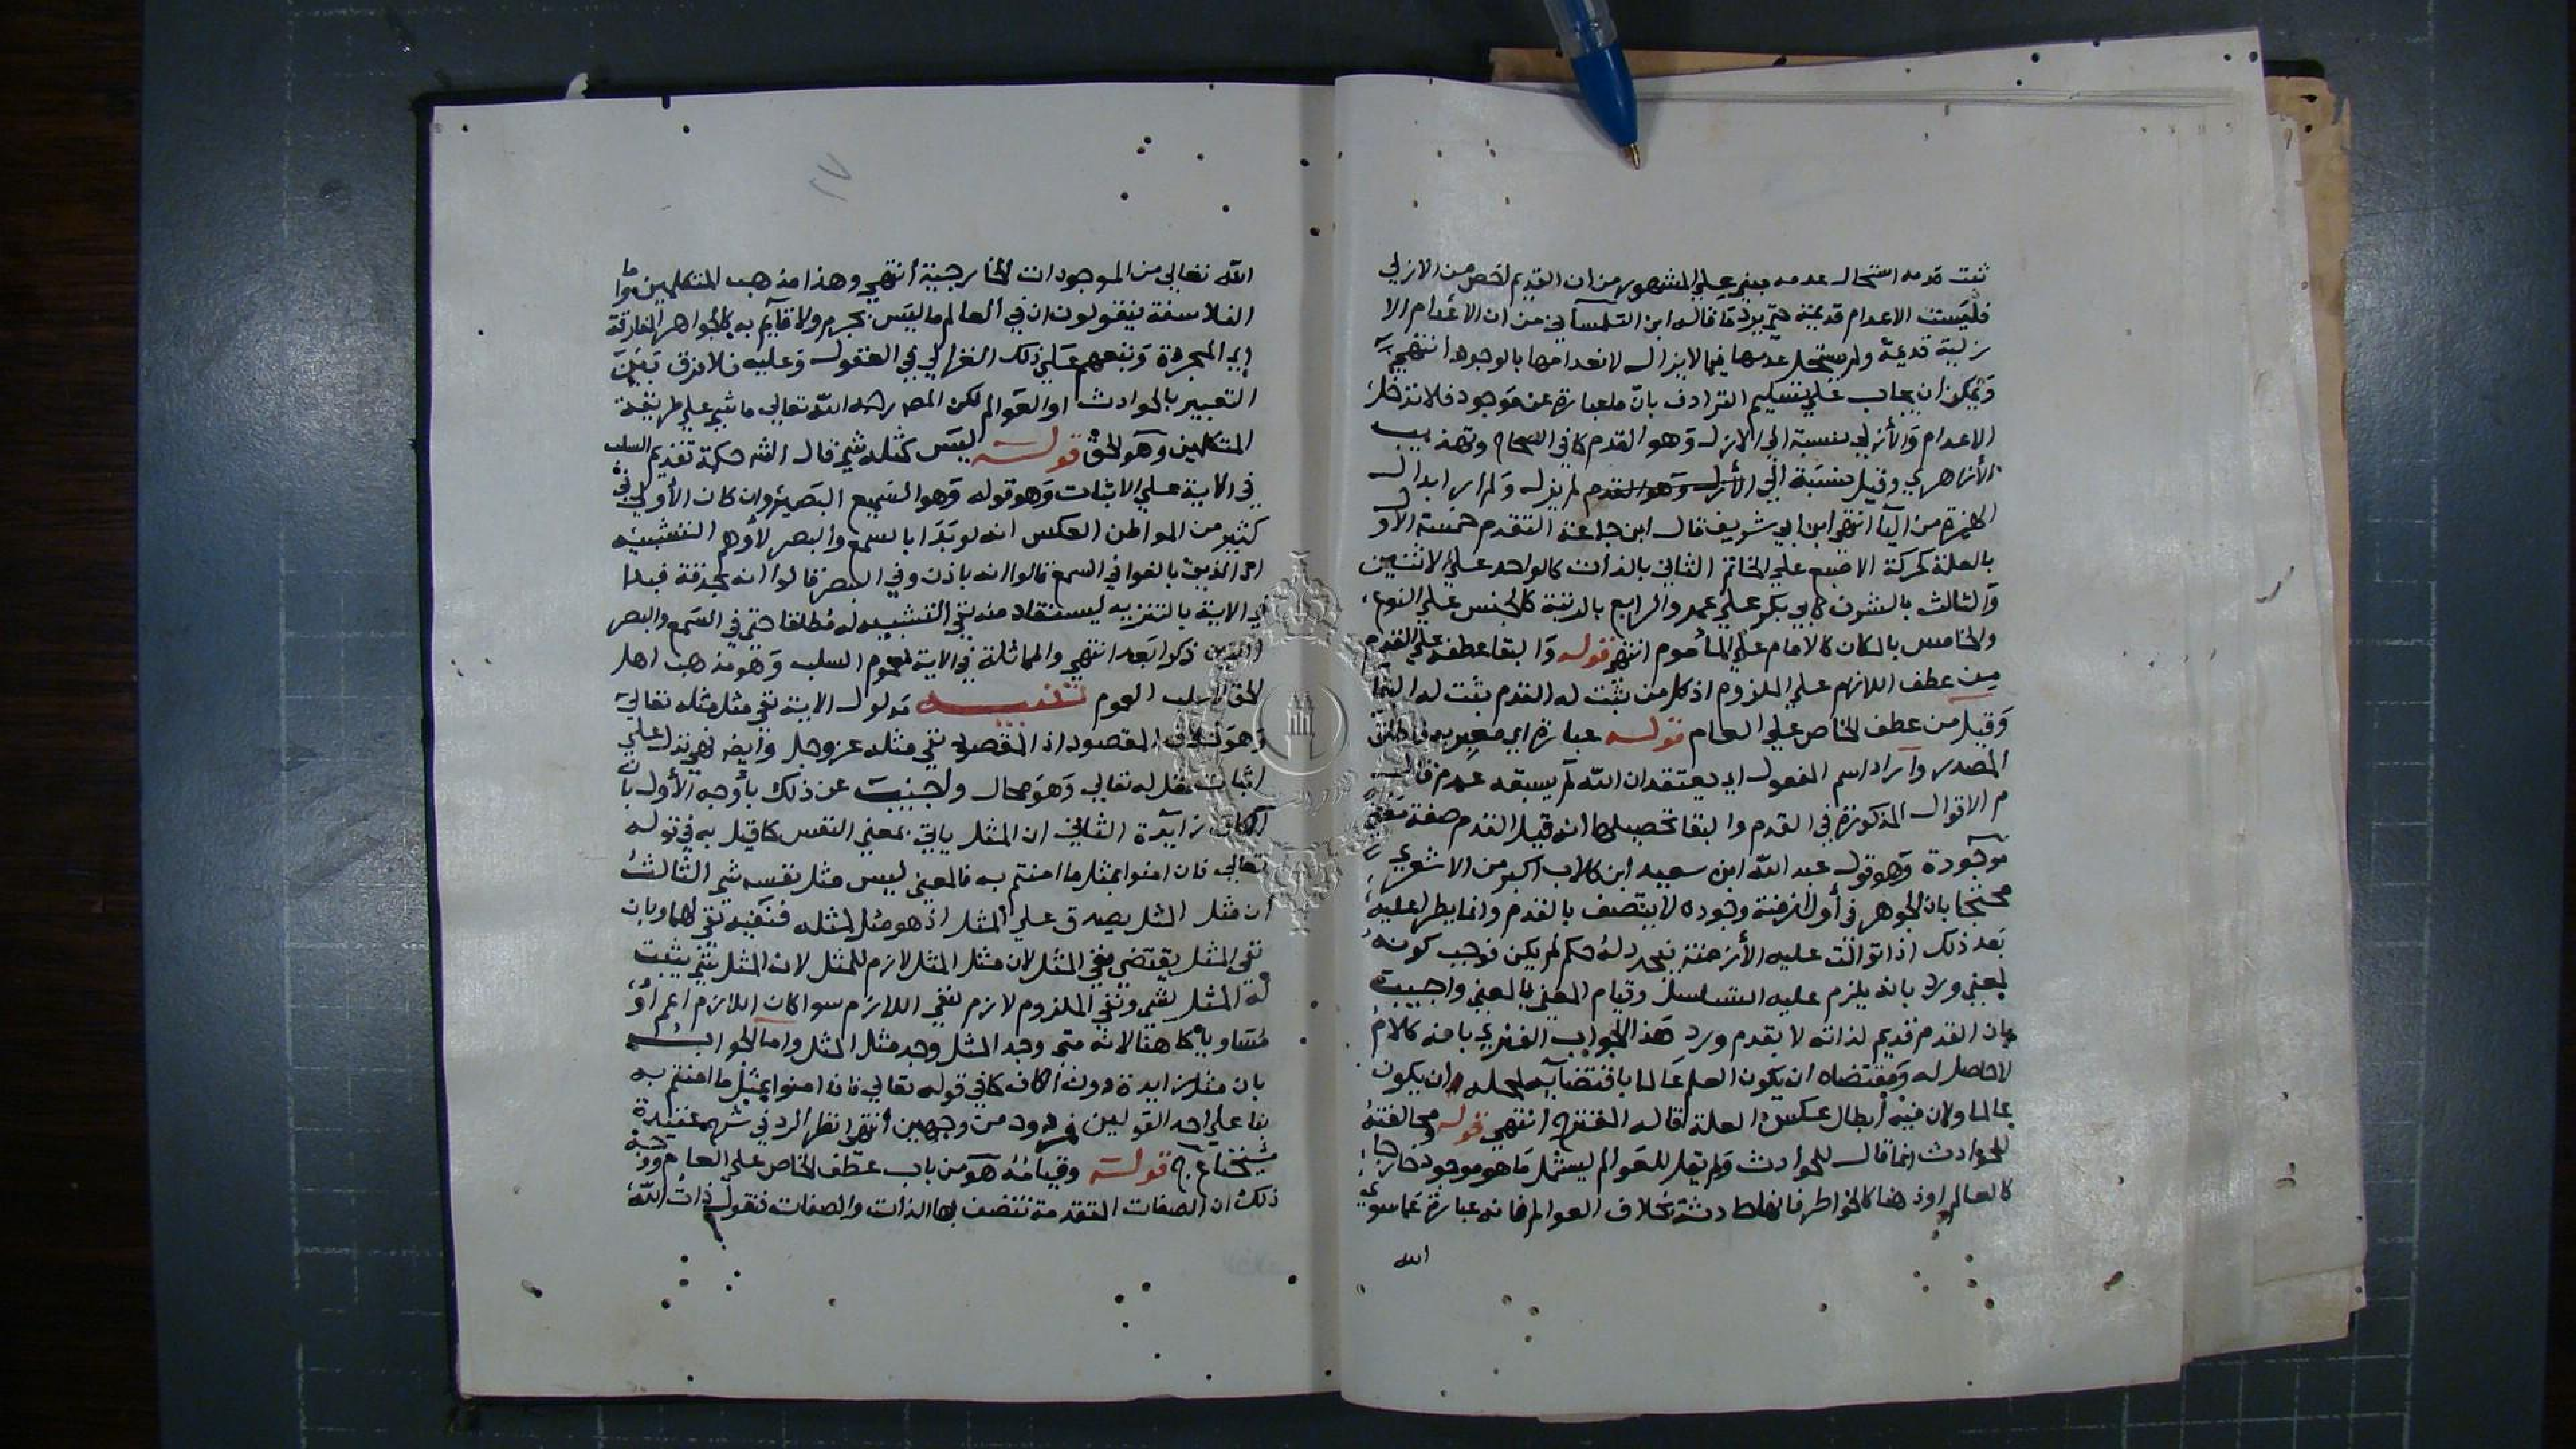 ثبت قدمه استحال عدمه مبني علي المشهور من ان القديم اخص من الازلي
فليست الاعدام قديمة حتي يرد ما قاله ابن التلمساني من ان الاعدام الا
زلية قديمة ولم يستحل عدمها فيما لايزال لانعدامها بالوجود انتهي
ويمكن ان يجاب علي تسليم الترادف بان ما عبارة عن موجود فلا تدخل
الاعدام والأزلي نسبة الي الازل وهو القدم كما في الصحاح وتهذيب
الأزهري وقيل نسبة الي لم يزل ولم ابدال
الهمزة من اليا انتهي ابن ابي شريف قال ابن جماعة التقدم خمسة الأول
بالعلة كحركة الاصبع علي الخاتم الثاني بالذات كالواحد علي الاثنين
والثالث بالشرف كابي بكر علي عمر والرابع بالرتبة كالجنس علي النوع
والخامس بالمكان كالامام علي المأموم انتهي قوله والبقا عطفه علي القدم
من عطف اللازم علي الملزوم اذ كل من ثبت له القدم ثبت له البقا
وقيل من عطف الخاص علي العام قوله عبارة اي معبر به فاطلق
المصدر وآراد اسم المفعول اي يعتقد ان الله لم يسبقه عدم
الاقوال المذكورة في القدم والبقا تحصيلها انه قيل القدم صفة معني
موجودة وهو قول عبد الله ابن سعيد ابن كلاب اكبر من الاشعري
محتجا بان الجوهر في أول ازمنة وجوده لا يتصف بالقدم وانما يطرا عليه
بعد ذلك اذا توالت عليه الأزمنة فتجدد له حكم لم يكن فوجب كونه
لمعني ورد بانه يلزم عليه التسلسل وقيام المعني بالمعني واجيب
بان القدم قديم لذاته لا بقدم ورد هذا الجواب الفهري بانه كلام
لا حاصل له ومقتضاه ان يكون العلم عالما باقتضايه لمحله ان يكون
عالما ولان فيه أبطال عكس العلة قاله المقترح انتهي قوله ومخالفته
للحوادث انما قال للحوادث ولم يقل للعوالم ليشمل ما هو موجود خارجا
كالعالم اوذهنا كالخواطر فانها حادثة بخلاف العوالم فانه عبارة عما سوي
الله
الله تعالي من الموجودات الخارجية أنتهي وهذا مذهب المتكلمين واما
الفلاسفة فيقولون ان في العالم ما ليس بجرم ولا قايم به كالجواهر المفارقة
اي المجردة وتبعهم علي ذلك الغزالي في العقول وعليه فلا فرق بين
التعبير بالحوادث او العوالم لكن المصـ رحمه الله تعالي ماشي علي طريقة
المتكلمين وهو الحق قوله ليس كمثله شي قال الشـ حكمة تقديم السلب
في الاية علي الاثبات وهو قوله وهو السميع البصير وان كان الأولي في
كثير من المواطن العكس انه لو بدا بالسمع والبصر لأوهم التشبيه
اذ الذين بالغوا في السمع قالوا انه باذن وفي البصر قالوا انه بحدقة فبدا
في الاية بالتنزيه ليستفاد منه نفي التشبيه له مطلقا حتي في السمع والبصر
الذين ذكرا بعد انتهي والمماثلة في الاية لعموم السلب وهو مذهب اهل
الحق لا سلب العموم تنبيه مدلول الاية نفي مثل مثله تعالي
وهو خلاف المقصود اذ المقصود نفي مثله عز وجل وأيضا فهي تدل علي
اثبات مثل له تعالي وهو محال واجيب عن ذلك بأوجه الأول بان
الكاف زايدة الثاني ان المثل ياتي بمعني النفس كما قيل به في قوله
تعالي فان امنوا بمثل ما امنتم به فالمعني ليس مثل نفسه شي الثالث
أن مثل المثل يصدق علي المثل اذ هو مثل لمثله فنفيه نفي لهما وبان
نفي المثل يقتضي نفي المثل لان مثل المثل لازم للمثل لان المثل شي يثبت
له المثل بشي ونفي الملزوم لازم لنفي اللازم سوا كان اللازم اعم أو
مساويا كما هنا لانه متي وجد المثل وجد مثل المثل واما الجواب
بان مثل زايدة دون الكاف كما في قوله تعالي فان امنوا بمثل ما امنتم به
بنا علي احد القولين فمردود من وجهين أنتهي انظر الرد في شرح عقيدة
شيخنا ع ج قوله وقيامه هو من باب عطف الخاص علي العام ووجه
ذلك ان الصفات المتقدمة تتصف بها الذات والصفات فتقول ذات الله